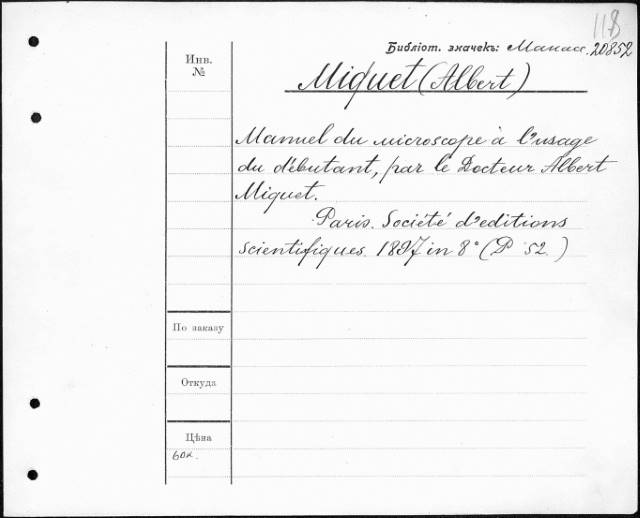 118
Инв.
№
Библіот. значекъ: 20852
Miquet (Albert)
Manuel du microscope à l'usage
du débutant, par le Docteur Albert
Miquet.
Paris. Société d'editions
scientifiques. 1897 in 8° (P 52.)
По заказу
Откуда
Цѣна
60к.